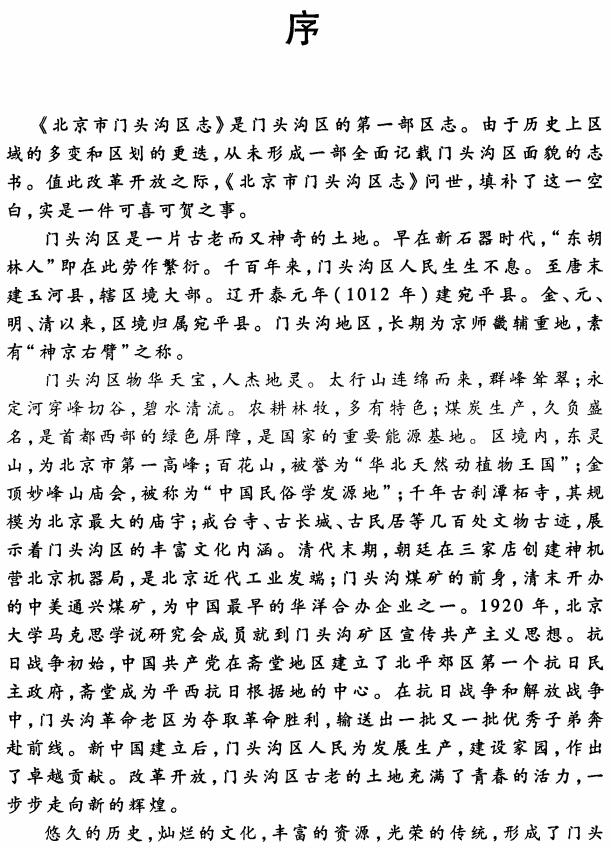 序
《北京市门头沟区志》是门头沟区的第一部区志。由于历史上区
域的多变和区划的更迭,从未形成一部全面记载门头沟区面貌的志
书。值此改革开放之际,《北京市门头沟区志》问世,填补了这一空
白,实是一件可喜可贺之事。
门头沟区是一片古老而又神奇的土地。早在新石器时代,“东胡
林人”即在此劳作繁衍。千百年来,门头沟区人民生生不息。至唐末
建玉河县,辖区境大部。辽开泰元年(1012 年)建宛平县。金、元、
明、清以来,区境归属宛平县。门头沟地区,长期为京师畿辅重地,素
有“神京右臂”之称。
门头沟区物华天宝,人杰地灵。太行山连绵而来,群峰耸翠;永
定河穿峰切谷,碧水清流。农耕林牧,多有特色;煤炭生产,久负盛
名,是首都西部的绿色屏障,是国家的重要能源基地。区境内,东灵
山,为北京市第一高峰;百花山,被誉为“华北天然动植物王国”;金
顶妙峰山庙会,被称为“中国民俗学发源地”;千年古刹潭柘寺,其规
模为北京最大的庙宇;戒台寺、古长城、古民居等几百处文物古迹,展
示着门头沟区的丰富文化内涵。清代末期,朝廷在三家店创建神机
营北京机器局,是北京近代工业发端;门头沟煤矿的前身,清末开办
的中美通兴煤矿,为中国最早的华洋合办企业之一。1920 年,北京
大学马克思学说研究会成员就到门头沟矿区宣传共产主义思想。抗
日战争初始,中国共产党在斋堂地区建立了北平郊区第一个抗日民
主政府,斋堂成为平西抗日根据地的中心。在抗日战争和解放战争
中,门头沟革命老区为夺取革命胜利,输送出一批又一批优秀子弟奔
赴前线。新中国建立后,门头沟区人民为发展生产,建设家园,作出
了卓越贡献。改革开放,门头沟区古老的土地充满了青春的活力,一
步步走向新的辉煌。
悠久的历史,灿烂的文化,丰富的资源,光荣的传统,形成了门头